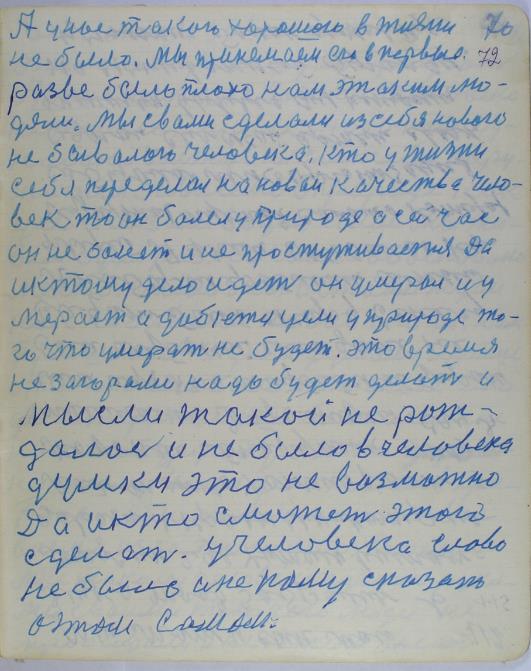 А у нас такого хорошого в жизни 70
не было. Мы принемаем его в первые. 72
разве было плохо нам этаким лю-
дям. Мы свами сделали из себя нового
не бывалого человека. Кто у жизни
себя переделал на новой качества чело-
век то он болел у природе а сей час
он не болеет и не простуживается Да
и к тому дело идет он умерал и у
мерает а добется цели у природе то-
го что умерат не будет. это время
не за горами надо будет делат и
мысли такой не рож-
далос и не было в человека
думки это не возможно
Да и кто сможет этого
сделат. у человека слово
не было и не кому сказать
о том самом.